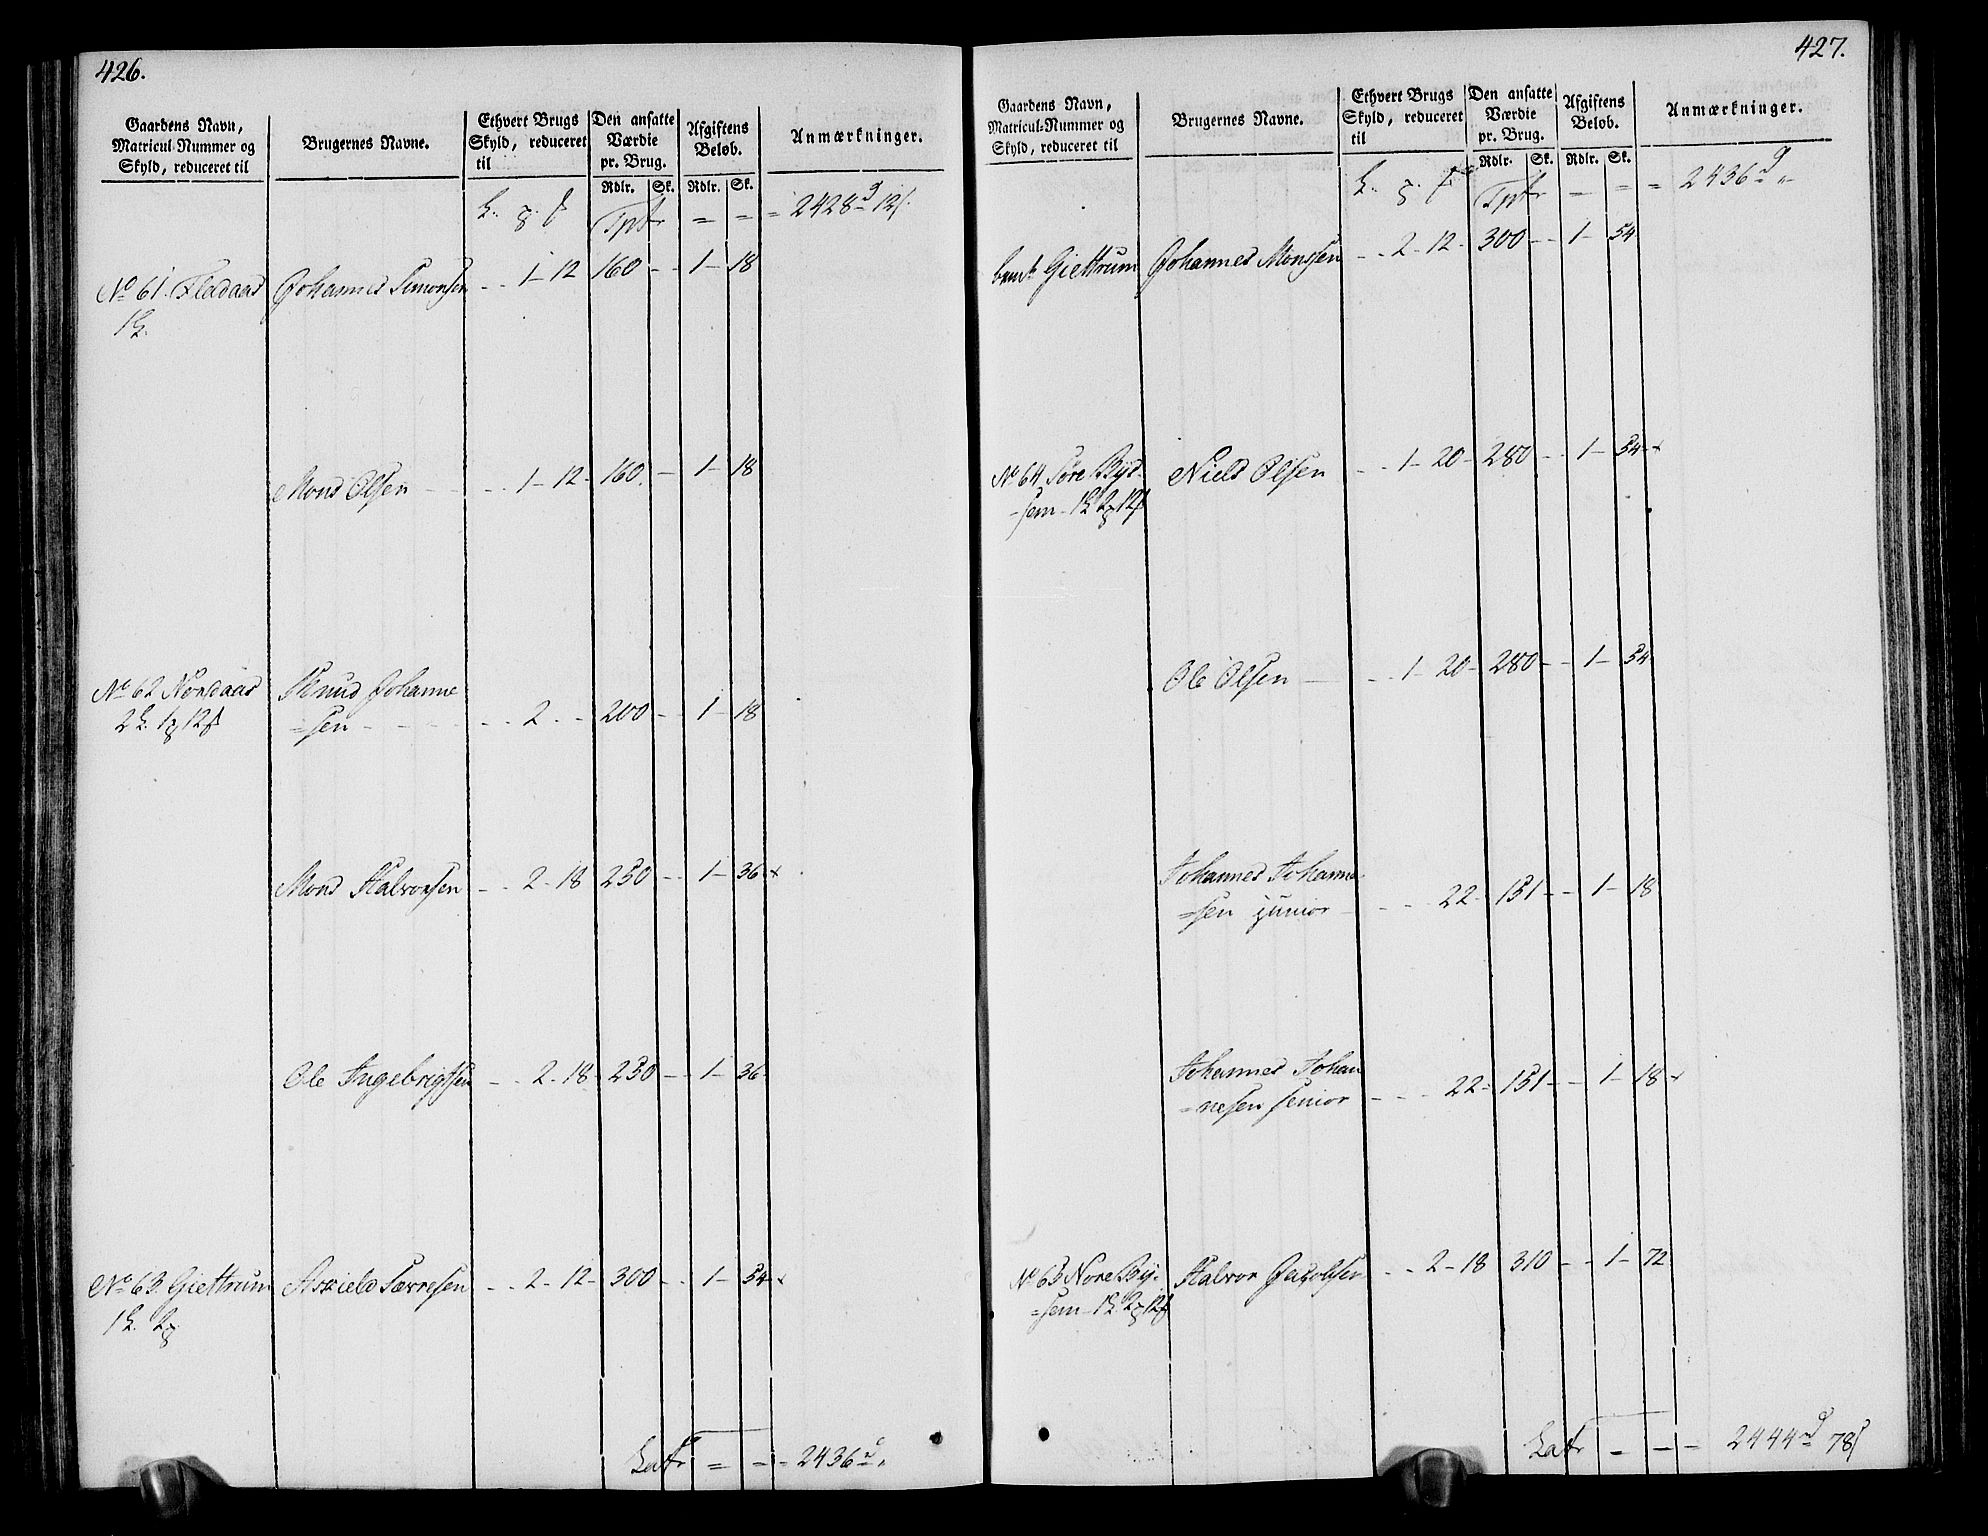 426.
Gaardens Navn,
Matricul-Nummer og
Skyld, reduceret til
Brugernes Navne.
Ethvert Brugs
Skyld, reduceret
til
Den ansatte
Værdie
pr. Brug.
Afgiftens
Beløb.
Anmærkninger.
Rdlr. Sk. Rdlr. Sk.
Tptr = = = 2428 12
No 61. Fladaas Johannes Simonsen - - 1 - 12 160 - - 1 - 18
1
Mons Olsen - - 1 - 12 - 160 - 1 - 18
No 62 Nordaas Knud Johanne
2 1 12 =sen - - 2 - - 200 - - 1 - 18
Mons Halvorsen - - 2 - 18 250 - - 1 - 36 x
Ole Ingebrigtsen - - 2 - 18 250 - - 1 - 36
No 63 Giettrum Askield Sævresen - - 2 - 12 - 300 - - 1 - 54 x
1 2
Latr = = = 2436
427.
Gaardens Navn,
Matricul-Nummer og
Skyld, reduceret til
Brugernes Navne.
Ethvert Brugs
Skyld, reduceret
til
Den ansatte
Værdie
pr. Brug.
Afgiftens
Beløb.
Anmærkninger.
Rdlr. Sk. Rdlr. Sk.
Tptr = = = 2436
Giettrum Johannes Monssen - - 2 - 12 - 300 - - 1 - 54
No 64 Søre Byd- Niels Olsen - - 1 - 20 - 280 - - 1 - 54 x
=sem - 1 2 12
Ole Olsen - - 1 - 20 - 280 - - 1 - 54
Johannes Johanne
=sen junior - - 22 - 151 - - 1 - 18
Johannes Johan
=nesen senior - - 22 - 151 - - 1 - 18 x
No 65 Nore By- Halvor Jacobsen - - 2 - 18 310 - - 1 - 72
=sem - 1 2 12
Latr = = = 2444 78